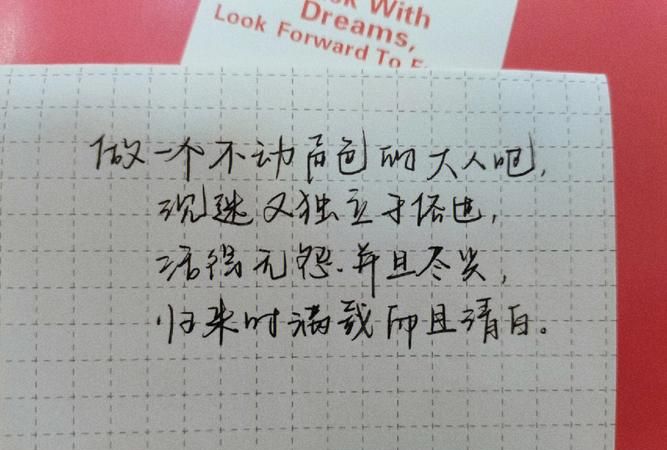 With
Dreams,
Look Forward To
做一个不动声色的大人吧,
沉迷又独立于俗世,
活得无怨.并且尽兴,
归来时满载而且清白。